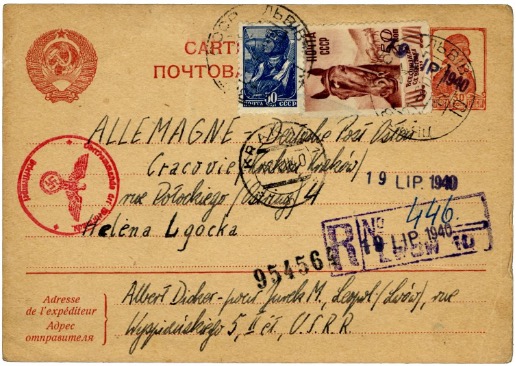 CARTE
ПОЧТОВАЯ
ПОЧТА СССР
ПОЧТА
СССР
ЛЬВІВ
LIP 1940
ALLEMAGNE - Deutsche Post Osten
Cracovie (Krakau Kraków)
rue Potockiego 4
Helena Lgocka
19 LIP. 1940
R No 446
LIP 1940
95456
Adresse
de l'expéditeur
Адрес
отправителя
Albert Dicker - pour Jurek M., Leopol (Lwów), rue
Wyspiańskiego 5, II ét., U.S.R.R.